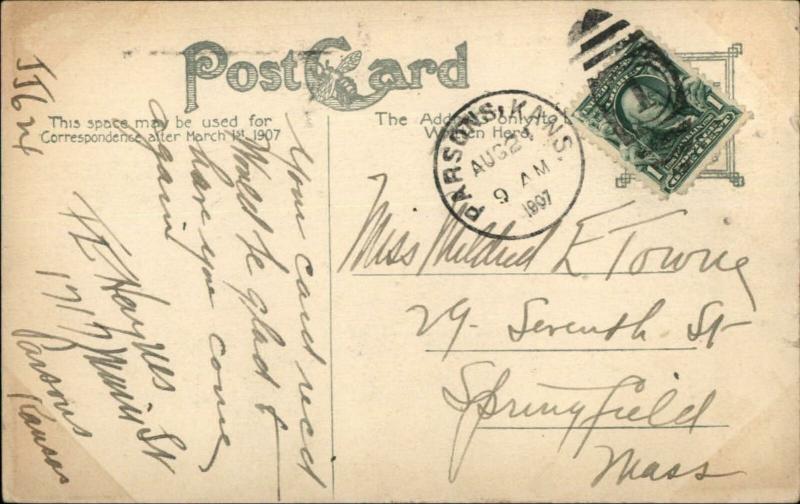 Post Card
This space may be used for
Correspondence after March 1st 1907
The Address only to be
Written Here
PARSONS, KANS.
AUG 2
9 AM
1907
1
1
Your card rec'd
Would be glad to
have you come
again
F E Haynes
1717 St
Parsons
Kansas
Miss Mildred E Towne
29 Seventh St
Springfield
Mass